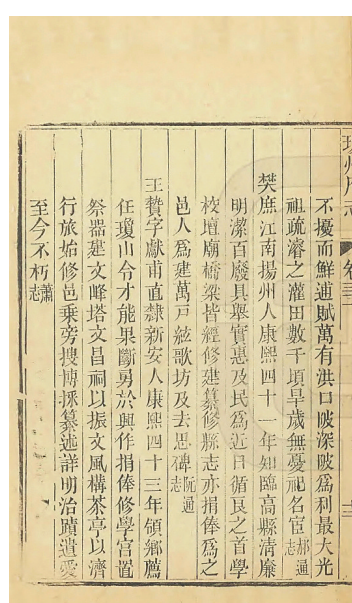 不擾而鮮逋賦萬有洪口陂深陂為利最大光
祖疏濬之灌田數千頃旱歲無憂祀名宦郝通志
樊庶江南揚州人康熙四十一年知臨高縣清廉
明潔百廢具舉實惠及民為近日循良之首學
校壇廟橋梁皆經修建纂修縣志亦捐俸為之
邑人為建萬戶絃歌坊及去思碑阮通志
王贄字獻甫直隸新安人康熙四十三年領鄉薦
任瓊山令才能果斷勇於興作捐俸修學宮置
祭器建文峰塔文昌祠以振文風構茶亭以濟
行旅始修邑乘旁搜博採纂述詳明治蹟遺愛
至今不朽蕭志